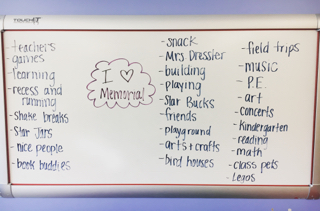 TOUCHIT
- teachers
games
- learning
- recess and
running
- shake breaks
- Star Jars
- nice people
- book buddies
I ♡
Memorial
- snack
- Mrs. Dressler
- building
- playing
- Star Bucks
- friends
- playground
- arts + crafts
- bird houses
- field trips
- music
- P.E.
- art
- concerts
- Kindergarten
- reading
- math
- class pets
- Legos